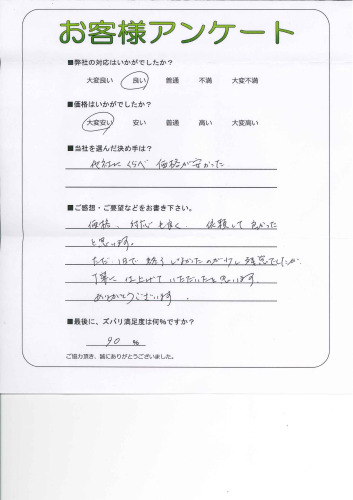 お客様アンケート
■弊社の対応はいかがでしたか?
大変良い 良い 普通 不満 大変不満
■価格はいかがでしたか?
大変安い 安い 普通 高い 大変高い
■当社を選んだ決め手は?
他社にくらべ 価格が安かった
■ご感想・ご要望などをお書き下さい。
価格、対応も良く、依頼して良かった
と思います。
ただ1日で終らなかったのが少し残念でしたが、
丁寧に仕上げていただいたと思います。
ありがとうございます。
■最後に、ズバリ満足度は何%ですか?
90 %
ご協力頂き、誠にありがとうございました。